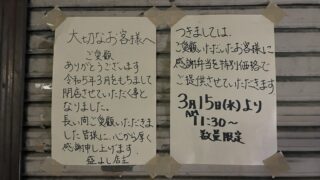 大切なお客様へ
ご愛顧
ありがとうございます
令和5年3月をもちまして
閉店させていただく事と
なりました。
長い間ご愛顧いただきま
した皆様に、心から厚く
感謝申し上げます。
店主
つきましては、
ご愛顧いただいたお客様に
感謝弁当を特別価格で
ご提供させていただきます
3月15日(水)より
AM
11:30〜
数量限定